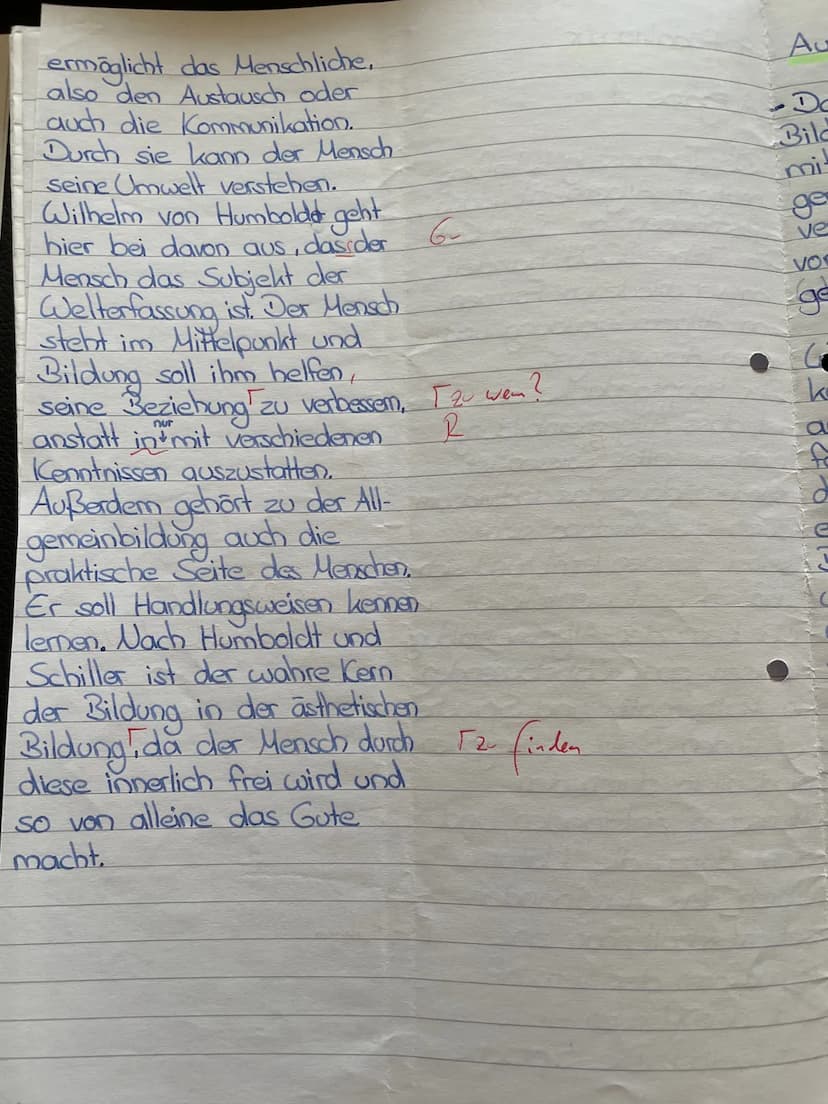 ermöglicht das Menschliche,
also den Austausch oder
auch die Kommunikation.
Durch sie kann der Mensch
seine Umwelt verstehen.
Wilhelm von Humboldt geht
hier bei davon aus, dass der G
Mensch das Subjekt der
Welterfassung ist. Der Mensch
steht im Mittelpunkt und
Bildung soll ihm helfen,
seine Beziehung Γ zu verbessern, Γ zu wem?
nur
anstatt in mit verschiedenen R
Kenntnissen auszustatten.
Außerdem gehört zu der All-
gemeinbildung auch die
praktische Seite des Menschen.
Er soll Handlungsweisen kennen
lernen. Nach Humboldt und
Schiller ist der wahre Kern
der Bildung in der ästhetischen
Bildung Γ, da der Mensch durch Γ zu finden
diese innerlich frei wird und
so von alleine das Gute
macht.
Au
- Da
Bild
mit
ge
ve
vor
ge